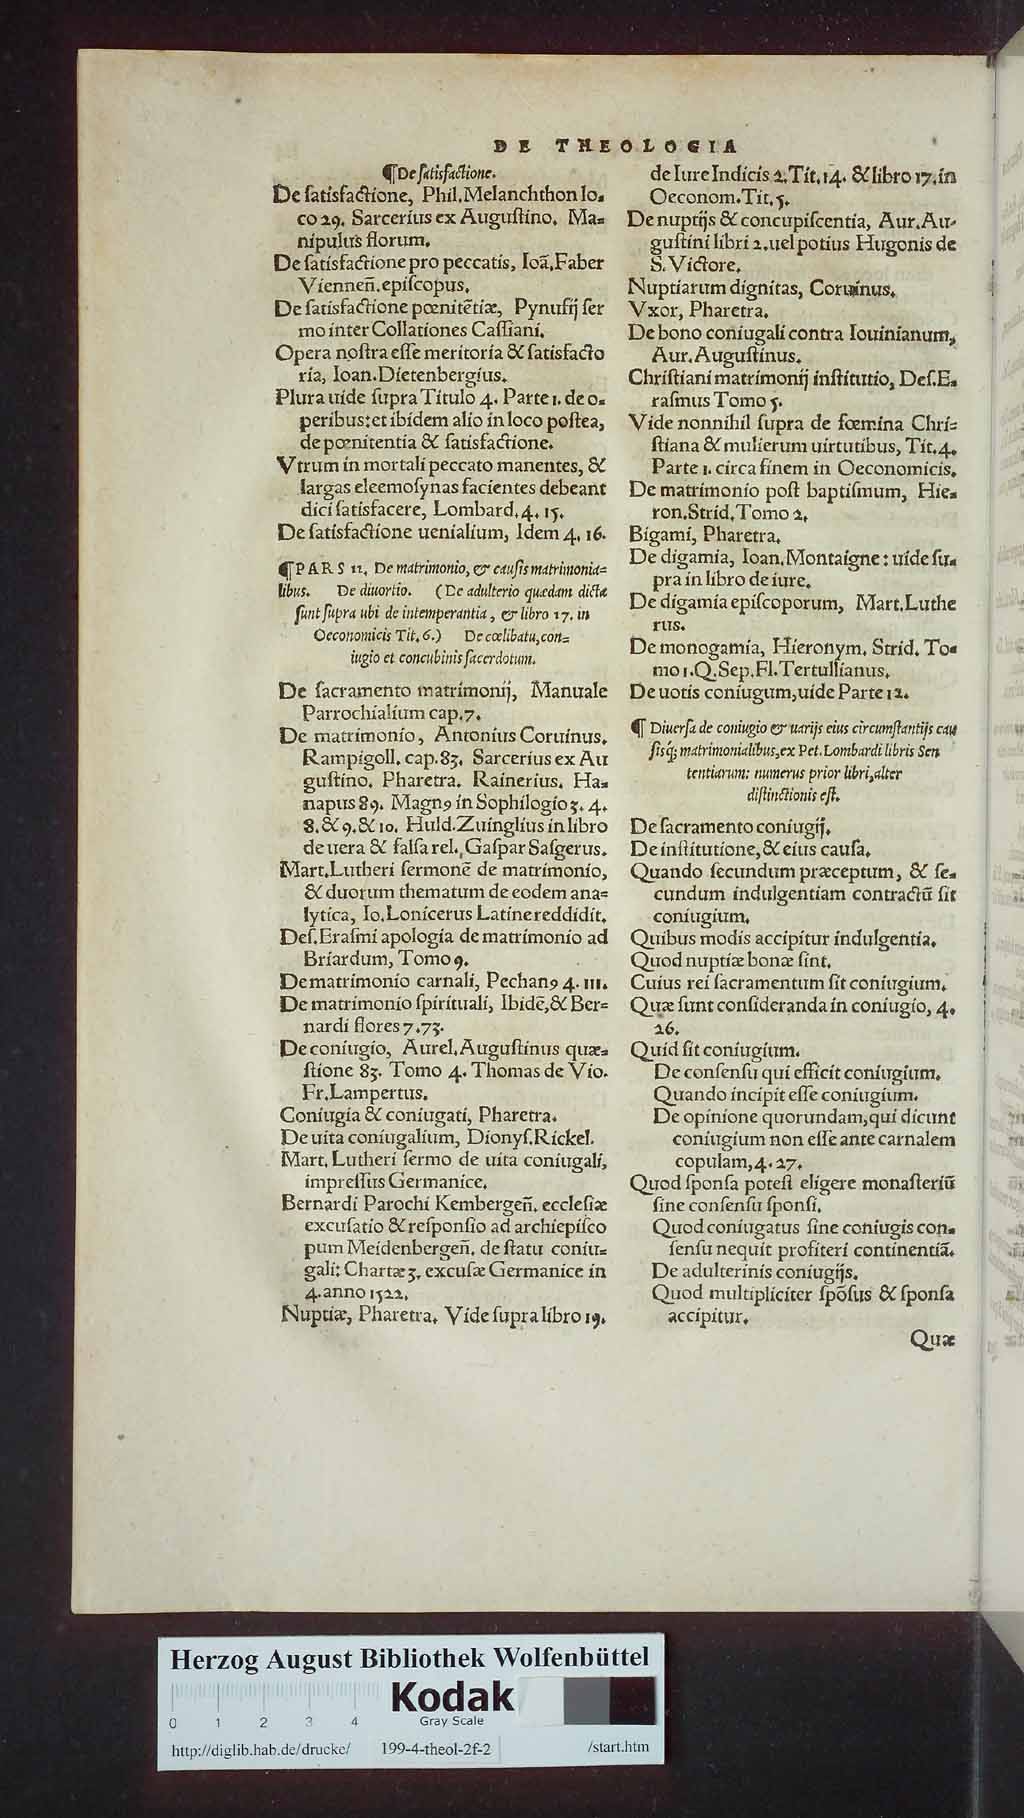 DE THEOLOGIA
¶ De ſatisfactione.
De ſatisfactione, Phil. Melanchthon lo=
co 29. Sarcerius ex Auguſtino. Ma=
nipulus florum.
De ſatisfactione pro peccatis, Ioã. Faber
Vienneñ. epiſcopus.
De ſatisfactione pœnitẽtiæ, Pynufij ſer
mo inter Collationes Caſſiani.
Opera noſtra eſſe meritoria & ſatisfacto
ria, Ioan. Dietenbergius.
Plura uide ſupra Titulo 4. Parte 1. de o=
peribus: et ibidem alio in loco poſtea,
de pœnitentia & ſatisfactione.
Vtrum in mortali peccato manentes, &
largas eleemoſynas facientes debeant
dici ſatisfacere, Lombard. 4. 15.
De ſatisfactione uenialium, Idem 4. 16.
¶ PARS 11. De matrimonio, & cauſis matrimonia=
libus. De diuortio. (De adulterio quædam dicta
ſunt ſupra ubi de intemperantia, & libro 17. in
Oeconomicis Tit. 6.) De cœlibatu, con=
iugio et concubinis ſacerdotum.
De ſacramento matrimonij, Manuale
Parrochialium cap. 7.
De matrimonio, Antonius Coruinus.
Rampigoll. cap. 83. Sarcerius ex Au
guſtino. Pharetra. Rainerius. Ha=
napus 89. Magnꝰ in Sophilogio 3. 4.
8. & 9. & 10. Huld. Zuinglius in libro
de uera & falſa rel. Gaſpar Saſgerus.
Mart. Lutheri ſermonẽ de matrimonio,
& duorum thematum de eodem ana=
lytica, Io. Lonicerus Latine reddidit.
Deſ. Eraſmi apologia de matrimonio ad
Briardum, Tomo 9.
De matrimonio carnali, Pechanꝰ 4. 111.
De matrimonio ſpirituali, Ibidẽ, & Ber=
nardi flores 7. 73.
De coniugio, Aurel. Auguſtinus quæ=
ſtione 83. Tomo 4. Thomas de Vio.
Fr. Lampertus.
Coniugia & coniugati, Pharetra.
De uita coniugalium, Dionyſ. Rickel.
Mart. Lutheri ſermo de uita coniugali,
impreſſus Germanice.
Bernardi Parochi Kembergeñ. eccleſiæ
excuſatio & reſponſio ad archiepiſco
pum Meidenbergeñ. de ſtatu coniu=
gali: Chartæ 3. excuſæ Germanice in
4. anno 1522.
Nuptiæ, Pharetra. Vide ſupra libro 19.
de Iure Indicis 2. Tit. 14. & libro 17. in
Oeconom. Tit. 5.
De nuptijs & concupiſcentia, Aur. Au=
guſtini libri 2. uel potius Hugonis de
S. Victore.
Nuptiarum dignitas, Coruinus.
Vxor, Pharetra.
De bono coniugali contra Iouinianum,
Aur. Auguſtinus.
Chriſtiani matrimonij inſtitutio, Deſ. E=
raſmus Tomo 5.
Vide nonnihil ſupra de fœmina Chri=
ſtiana & mulierum uirtutibus, Tit. 4.
Parte 1. circa finem in Oeconomicis.
De matrimonio poſt baptiſmum, Hie=
ron. Strid. Tomo 2.
Bigami, Pharetra.
De digamia, Ioan. Montaigne: uide ſu=
pra in libro de iure.
De digamia epiſcoporum, Mart. Luthe
rus.
De monogamia, Hieronym. Strid. To=
mo 1. Q. Sep. Fl. Tertullianus.
De uotis coniugum, uide Parte 12.
¶ Diuerſa de coniugio & uarijs eius circumſtantijs cau
ſisq́; matrimonialibus, ex Pet. Lombardi libris Sen
tentiarum: numerus prior libri, alter
diſtinctionis eſt.
De ſacramento coniugij.
De inſtitutione, & eius cauſa.
Quando ſecundum præceptum, & ſe=
cundum indulgentiam contractũ ſit
coniugium.
Quibus modis accipitur indulgentia.
Quod nuptiæ bonæ ſint.
Cuius rei ſacramentum ſit coniugium.
Quæ ſunt conſideranda in coniugio, 4.
26.
Quid ſit coniugium.
De conſenſu qui efficit coniugium.
Quando incipit eſſe coniugium.
De opinione quorundam, qui dicunt
coniugium non eſſe ante carnalem
copulam, 4. 27.
Quod ſponſa poteſt eligere monaſteriũ
ſine conſenſu ſponſi.
Quod coniugatus ſine coniugis con=
ſenſu nequit profiteri continentiã.
De adulterinis coniugijs.
Quod multipliciter ſpõſus & ſponſa
accipitur.
Quæ
Herzog August Bibliothek Wolfenbüttel
Kodak
Gray Scale
0 1 2 3 4
http://diglib.hab.de/drucke/ 199-4-theol-2f-2 /start.htm